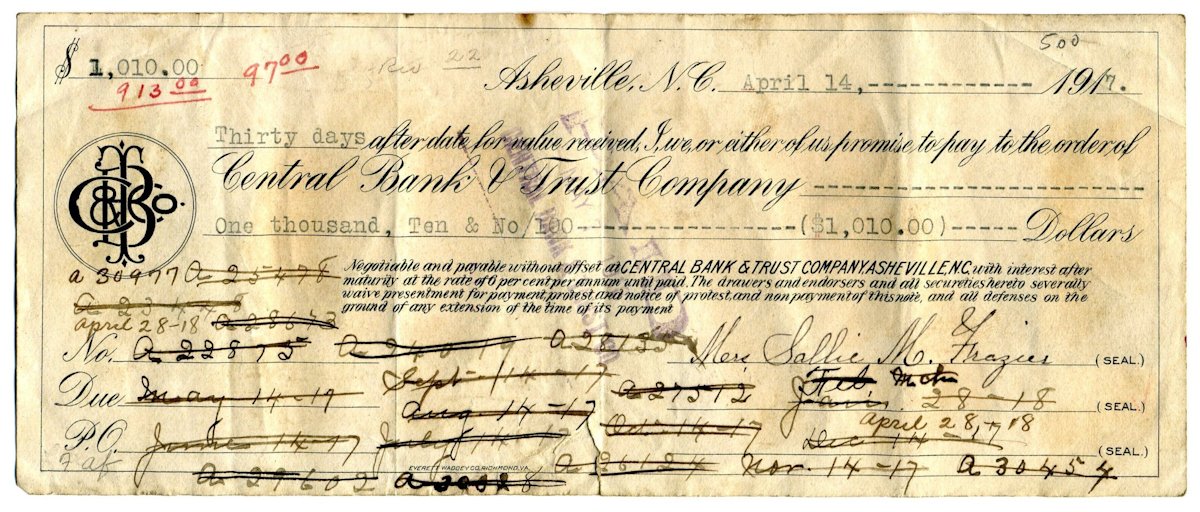 500
$ 1,010.00 97.00 Rev 22
913.00 Asheville, N.C. April 14, 1917.
Thirty days after date for value received, I, we, or either of us promise, to pay to the order of
Central Bank & Trust Company
One thousand, Ten & No/100 ($1,010.00) Dollars
CB&TCo.
Negotiable and payable without offset at CENTRAL BANK & TRUST COMPANY, ASHEVILLE, N.C. with interest after
maturity at the rate of 6 per cent per annum until paid. The drawers and endorsers and all secureties hereto severally
waive presentment for payment, protest and notice of protest, and non payment of this note, and all defenses on the
ground of any extension of the time of its payment
a 30977 a 25478
a 23448
April 28-18 a 28573
No. a 22875 a 24017 Mrs Sallie M. Frazier (SEAL.)
Sept 14-17 a 27512 Feb Mch
Due May 14-17 Aug 14-17 Jan. 28-18 (SEAL.)
April 28, 18
P.O. June 14-17 July 14-17 Oct 14-17 Dec 14-17 (SEAL.)
EVERETT WADDEY CO., RICHMOND, VA.
a 26124 Nov. 14-17 a 30454
a 29602 a 30028